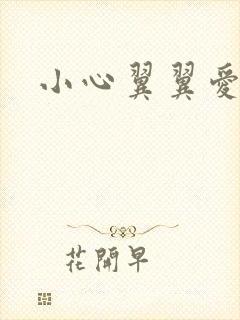 小心翼翼愛
花開早